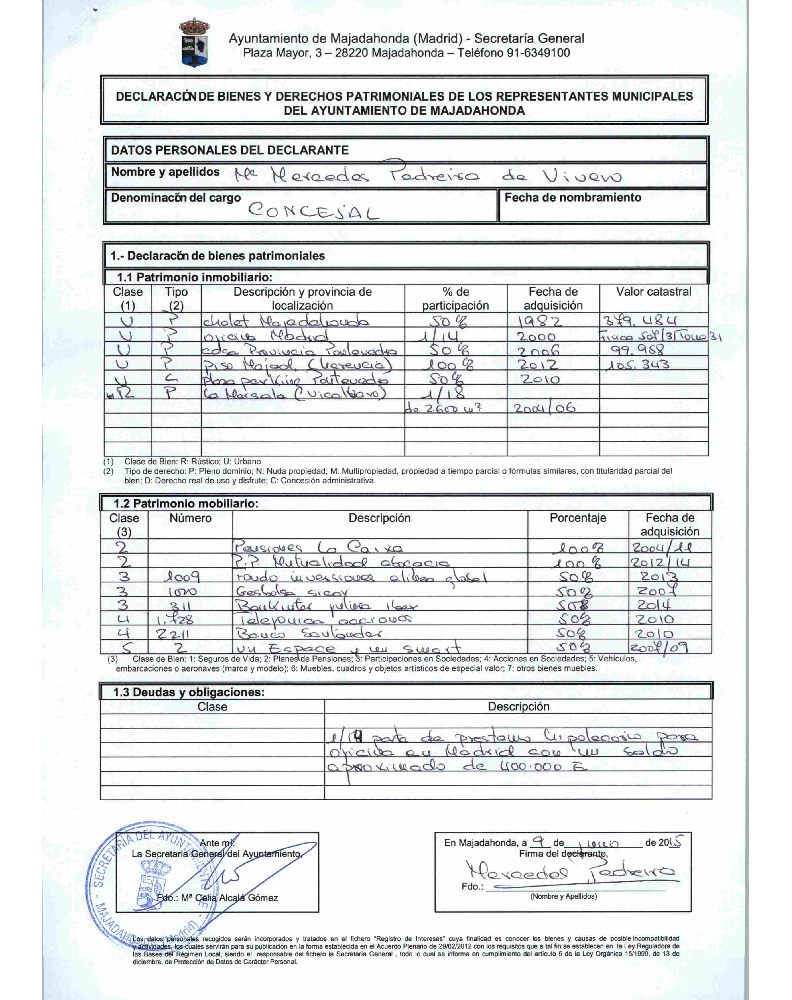 Ayuntamiento de Majadahonda (Madrid) - Secretaría General
Plaza Mayor, 3 – 28220 Majadahonda – Teléfono 91-6349100
DECLARACÓN DE BIENES Y DERECHOS PATRIMONIALES DE LOS REPRESENTANTES MUNICIPALES
DEL AYUNTAMIENTO DE MAJADAHONDA
DATOS PERSONALES DEL DECLARANTE
Nombre y apellidos Mª Mercedes Pedreira de Vivero
Denominacón del cargo CONCEJAL Fecha de nombramiento
1.- Declaracón de bienes patrimoniales
1.1 Patrimonio inmobiliario:
Clase (1) Tipo (2) Descripción y provincia de localización % de participación Fecha de adquisición Valor catastral
U P chalet Majadahonda 50% 1982 379.484
U P oficina Madrid 1/14 2000
U P casa Provincia Pontevedra 50% 2006 99.958
U P piso Majad. (herencia) 100% 2012 105.343
U C Plaza parking Pontevedra 50% 2010
R P 1/18
de 2.600 m3 2004/06
(1) Clase de Bien: R: Rústico; U: Urbano
(2) Tipo de derecho: P: Pleno dominio; N: Nuda propiedad; M: Multipropiedad, propiedad a tiempo parcial o fórmulas similares, con titularidad parcial del
bien; D: Derecho real de uso y disfrute; C: Concesión administrativa.
1.2 Patrimonio mobiliario:
Clase (3) Número Descripción Porcentaje Fecha de adquisición
2 Pensiones La Caixa 100% 2004/11
2 P.P. Mutualidad abogacía 100% 2012/14
3 1009 fondo inversiones global 50% 2013
3 1070 Gesbolsa sicav 50% 2007
3 311 Bankinter ibex 50% 2014
4 1.728 Telefonica acciones 50% 2010
4 2211 Banco Santander 50% 2010
5 2 un Espace y un Smart 50% 2007/09
(3) Clase de Bien: 1: Seguros de Vida; 2: Planes de Pensiones; 3: Participaciones en Sociedades; 4: Acciones en Sociedades; 5: Vehículos,
embarcaciones o aeronaves (marca y modelo); 6: Muebles, cuadros y objetos artísticos de especial valor; 7: otros bienes muebles.
1.3 Deudas y obligaciones:
Clase Descripción
1/14 parte de prestamo hipotecario para
oficina en Madrid con un saldo
aproximado de 400.000 €
Ante mí:
La Secretaria General del Ayuntamiento,
Fdo.: Mª Celia Alcalá Gómez
En Majadahonda, a 9 de junio de 2015
Firma del declarante,
Mercedes Pedreira
Fdo.:
(Nombre y Apellidos)
Los datos personales recogidos serán incorporados y tratados en el fichero "Registro de Intereses" cuya finalidad es conocer los bienes y causas de posible incompatibilidad
y actividades, los cuales servirán para su publicación en la forma establecida en el Acuerdo Plenario de 29/02/2012 con los requisitos que a tal fin se establecen en la Ley Reguladora de
las Bases del Régimen Local, siendo el responsable del fichero la Secretaría General, todo lo cual se informa en cumplimiento del artículo 5 de la Ley Orgánica 15/1999, de 13 de
diciembre, de Protección de Datos de Carácter Personal.